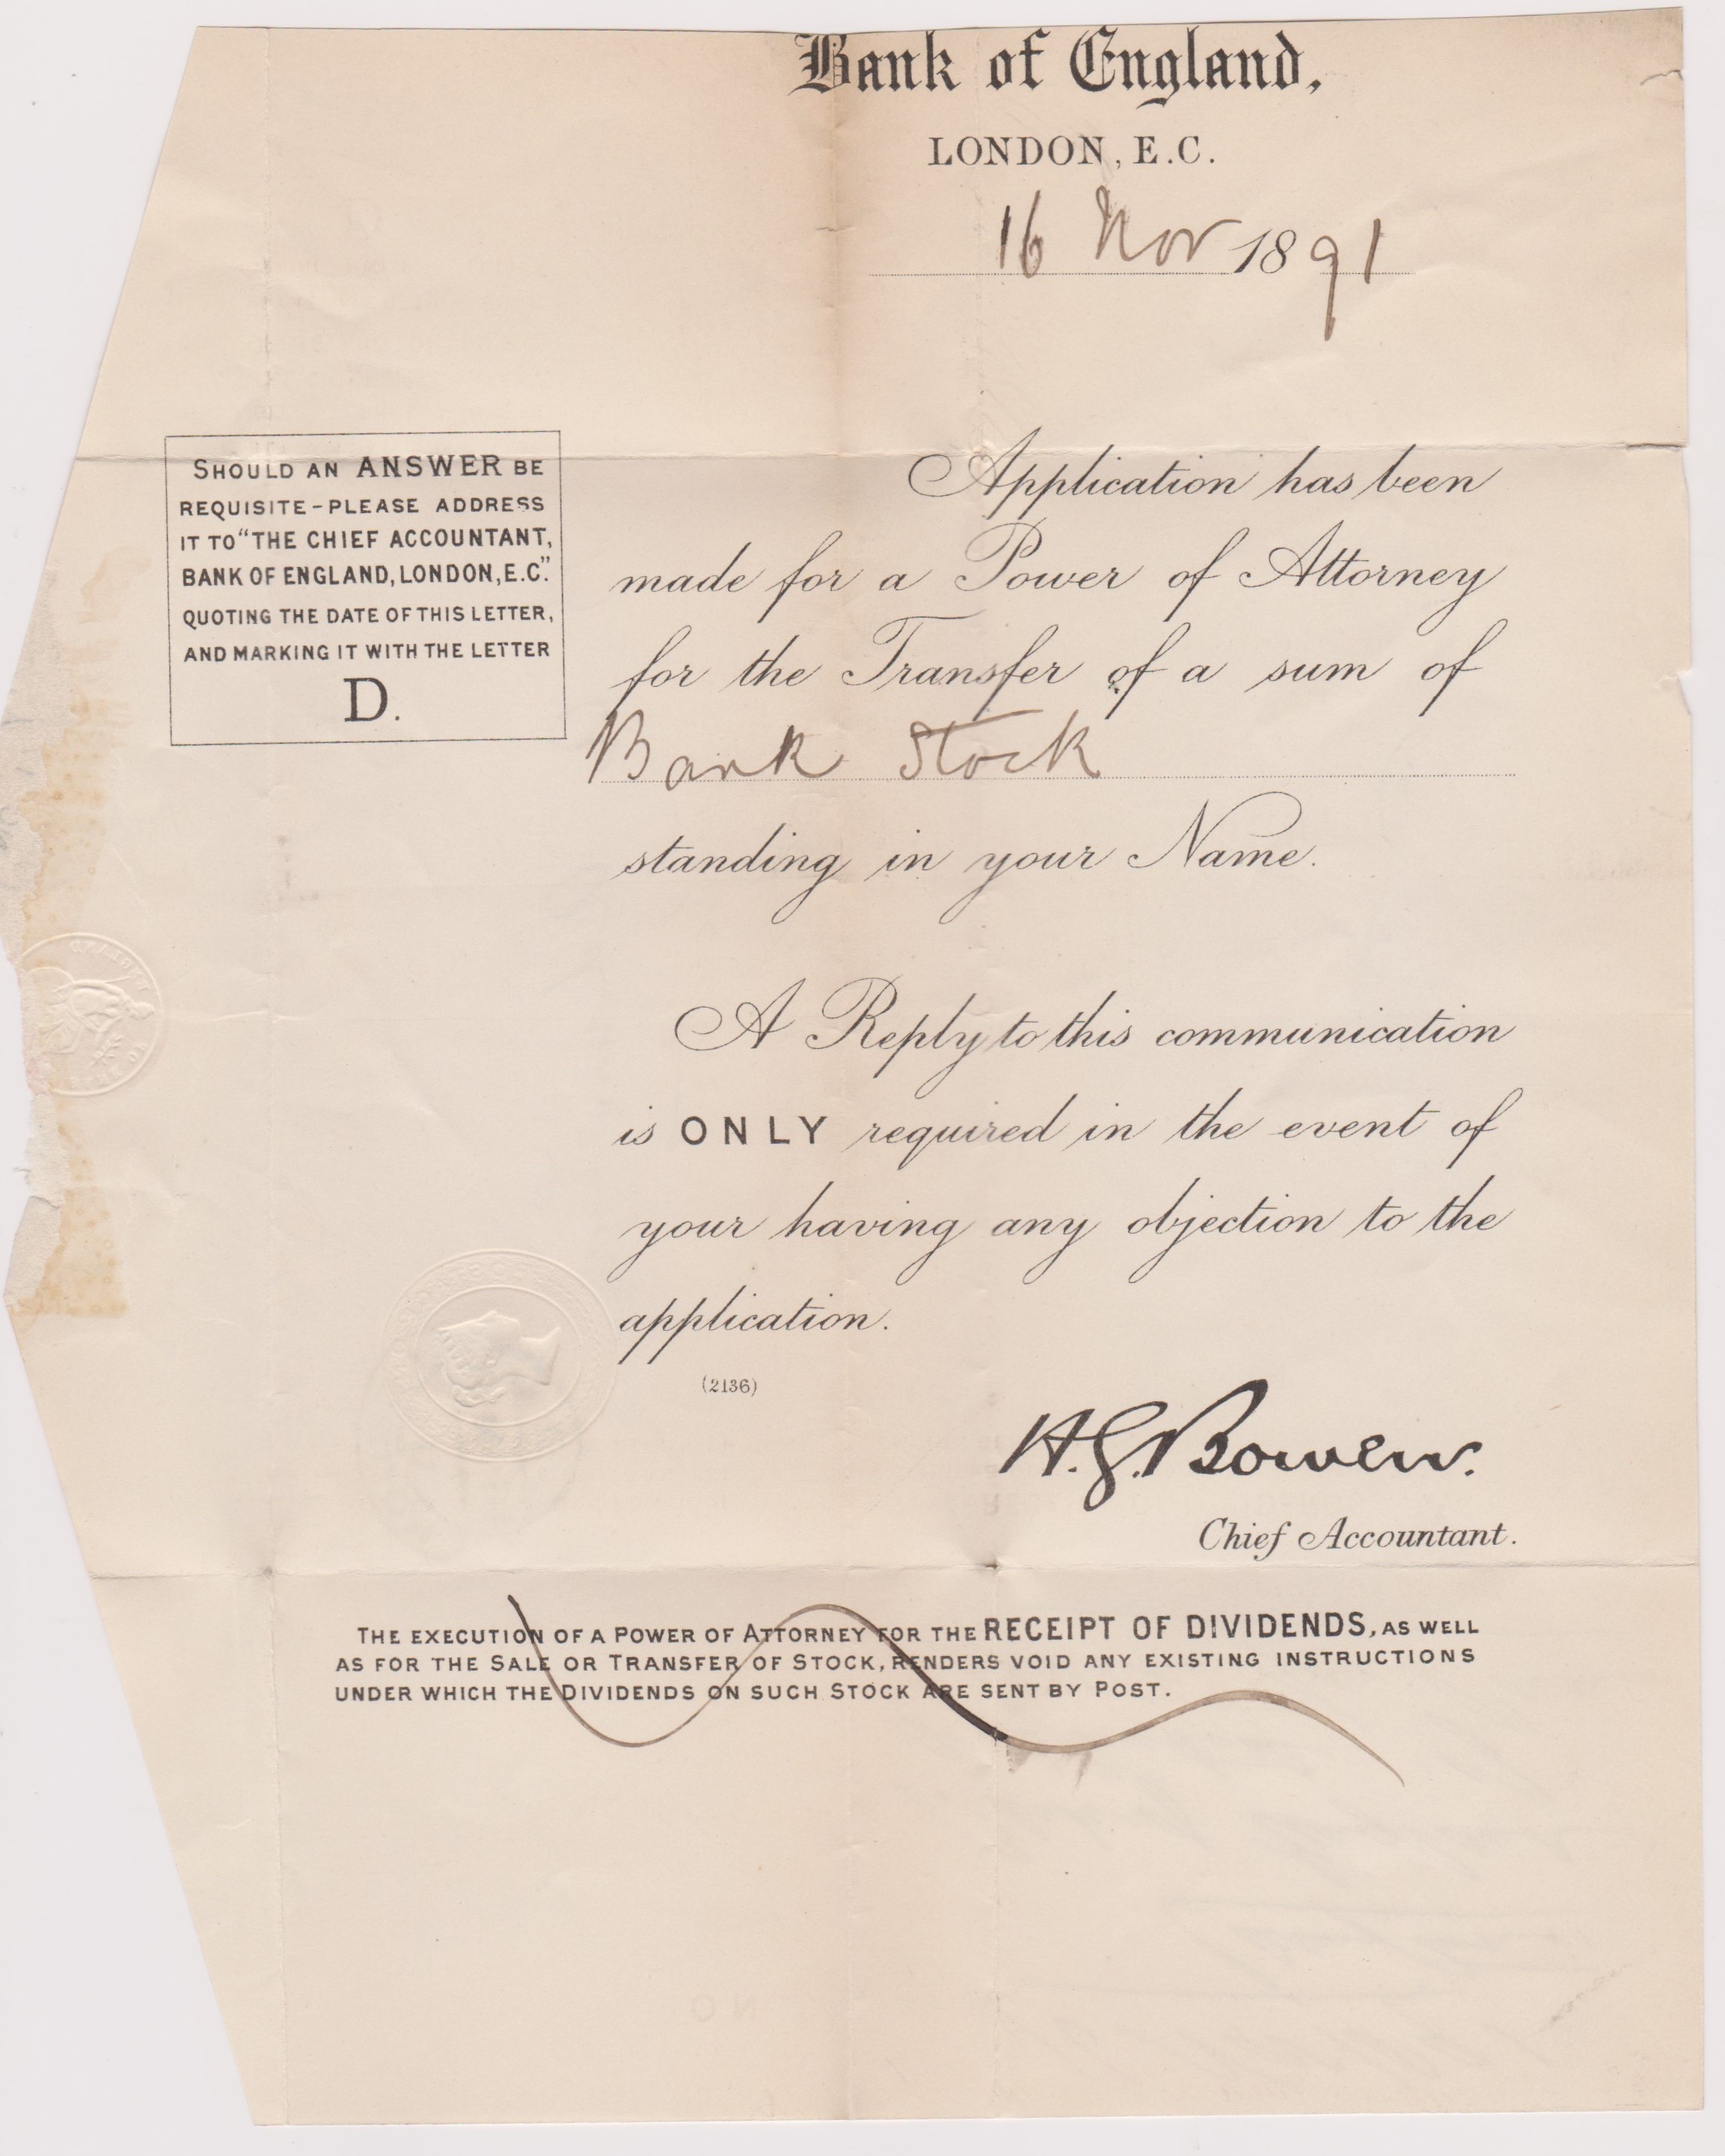 Bank of England,
LONDON, E.C.
16 Nov 1891
SHOULD AN ANSWER BE
REQUISITE-PLEASE ADDRESS
IT TO "THE CHIEF ACCOUNTANT,
BANK OF ENGLAND, LONDON, E.C."
QUOTING THE DATE OF THIS LETTER,
AND MARKING IT WITH THE LETTER
D.
Application has been
made for a Power of Attorney
for the Transfer of a sum of
Bank Stock
standing in your Name.
A Reply to this communication
is ONLY required in the event of
your having any objection to the
application.
(2136)
H.G. Bowen.
Chief Accountant.
THE EXECUTION OF A POWER OF ATTORNEY FOR THE RECEIPT OF DIVIDENDS, AS WELL
AS FOR THE SALE OR TRANSFER OF STOCK, RENDERS VOID ANY EXISTING INSTRUCTIONS
UNDER WHICH THE DIVIDENDS ON SUCH STOCK ARE SENT BY POST.